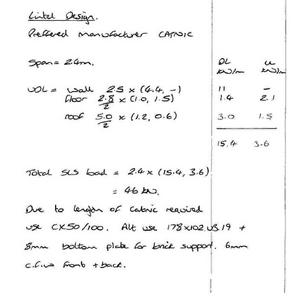 Lintel Design.
Preferred Manufacturer CATNIC
Span = 2.4m. DL LL
kN/m kN/m
UDL = wall 2.5 x (4.4, -) 11 -
floor 2.8/2 x (1.0, 1.5) 1.4 2.1
roof 5.0/2 x (1.2, 0.6) 3.0 1.5
15.4 3.6
Total SLS load = 2.4 x (15.4, 3.6)
= 46 kN.
Due to length of Catnic required
use CX50/100. Alt use 178x102 UB 19 +
8mm bottom plate for brick support. 6mm
c.f.w front + back.